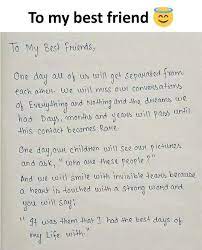 To my best friend 😇
To My Best Friends,
One day all of us will get separated from
each other. We will miss our conversations
of Everything and Nothing and the dreams we
had. Days, months and years will pass until
this contact becomes Rare.
One day, our children will see our pictures
and ask, "Who are these people?"
And we will smile with invisible tears because
a heart is touched with a strong word and
you will say;
"It was them that I had the best days of
my Life with."